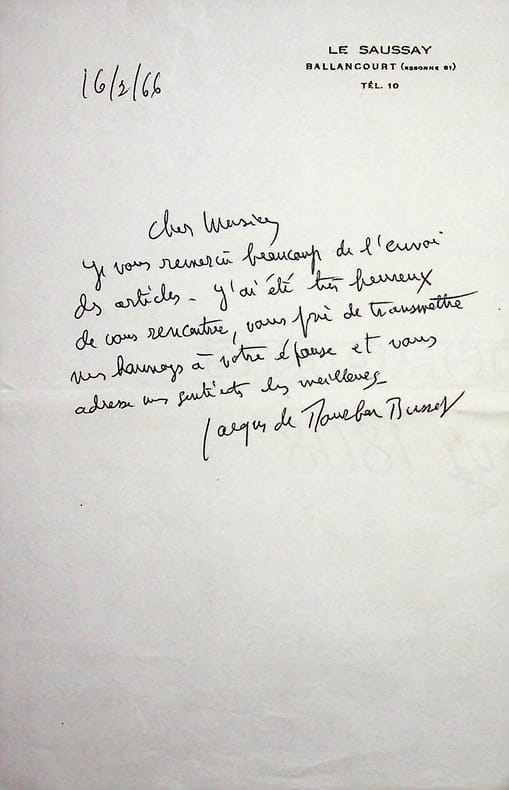 LE SAUSSAY
BALLANCOURT (ESSONNE 91)
TÉL. 10
16/2/66
Cher Monsieur
Je vous remercie beaucoup de l'envoi
des articles. J'ai été très heureux
de vous rencontrer, vous prie de transmettre
mes hommages à votre épouse et vous
adresse mes sentiments les meilleurs
Jacques de Bourbon Busset